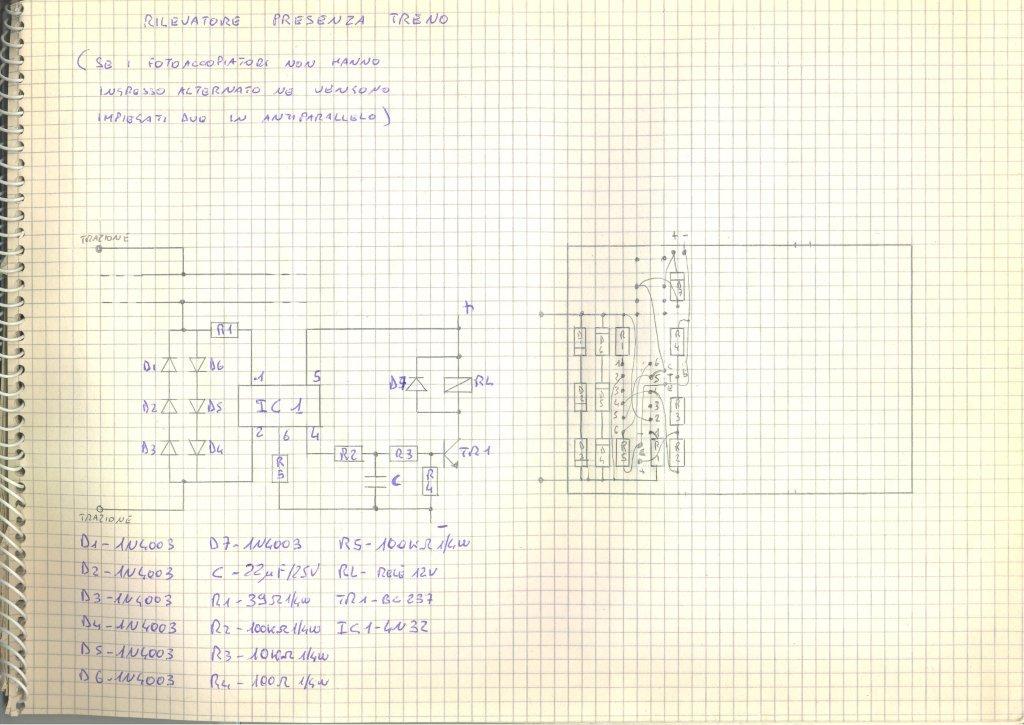 RILEVATORE PRESENZA TRENO
(SE I FOTOACCOPIATORI NON HANNO
INGRESSO ALTERNATO NE VENGONO
IMPIEGATI DUE IN ANTIPARALLELO)
TRAZIONE
+ -
D7
R1
+
R1 R4
D1 D6
1 5
D7 RL
D2 D5
IC1
2 6 4
D3 D4
R2 R3 TR1
R5 C R4
R5 R2
-
TRAZIONE
D1-1N4003 D7-1N4003 R5-100KΩ 1/4W
D2-1N4003 C-22µF/25V RL-RELÈ 12V
D3-1N4003 R1-39Ω 1/4W TR1-BC237
D4-1N4003 R2-100KΩ 1/4W IC1-4N32
D5-1N4003 R3-10KΩ 1/4W
D6-1N4003 R4-100Ω 1/4W